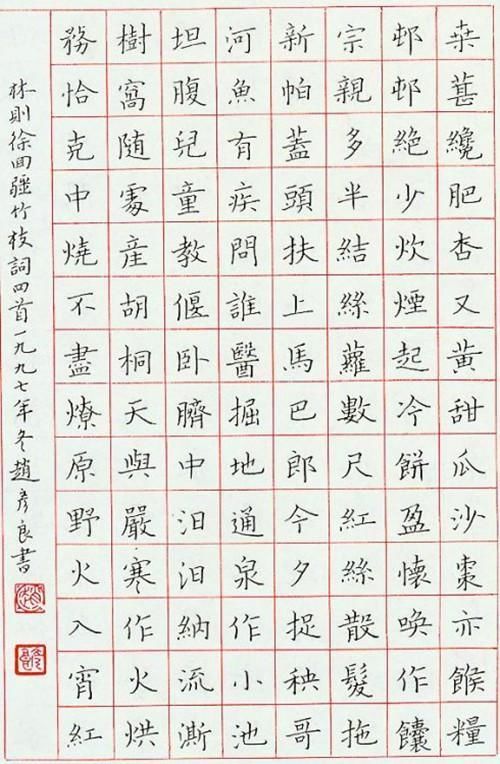 桒葚纔肥杏又黃甜瓜沙棗亦餱糧
邨邨絕少炊煙起冷餅盈懷喚作饢
宗親多半結絲蘿數尺紅絲散髮拖
新帕蓋頭扶上馬巴郎今夕捉秧哥
河魚有疾問誰醫掘地通泉作小池
坦腹兒童教偃卧臍中汩汩納流澌
樹窩隨處產胡桐天與嚴寒作火烘
務恰克中燒不盡燎原野火入宵紅
林則徐回疆竹枝詞四首一九九七年冬趙彥良書